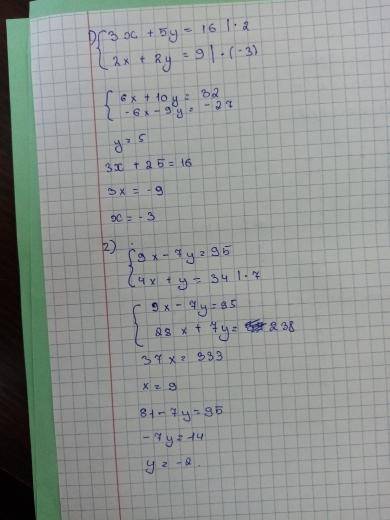 1) { 3x + 5y = 16 | · 2
2x + 2y = 9 | · (-3)
{ 6x + 10y = 32
-6x - 9y = -27
y = 5
3x + 25 = 16
3x = -9
x = -3
2) { 9x - 7y = 95
4x + y = 34 | · 7
{ 9x - 7y = 95
28x + 7y = 238
37x = 333
x = 9
81 - 7y = 95
-7y = 14
y = -2.